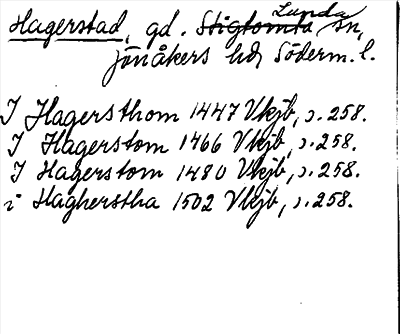 Lunda
Hagerstad, gd. Stigtomta sn,
Jönåkers hd, Söderm. l.
I Hagersthom 1447 Vkjb, s. 258.
I Hagerstom 1466 Vkjb, s. 258.
I Hagerstom 1480 Vkjb, s. 258.
i Hagherstha 1502 Vkjb, s. 258.